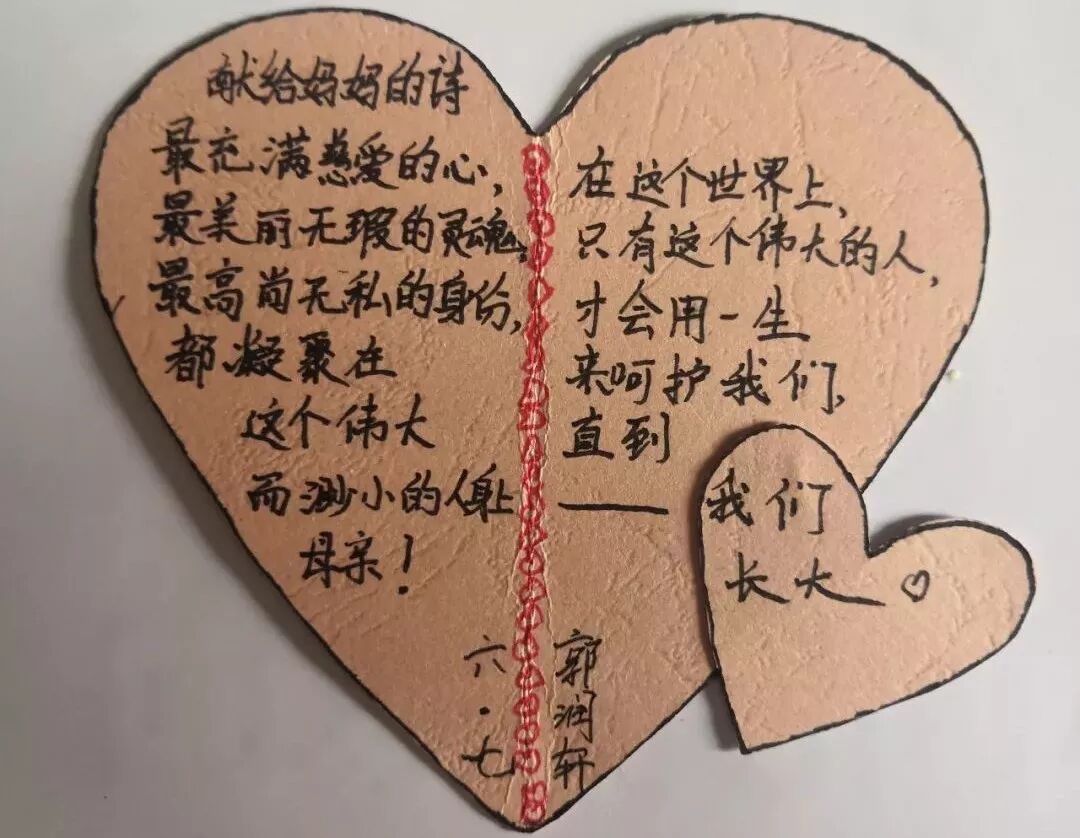 献给妈妈的诗
最充满慈爱的心,
最美丽无瑕的灵魂,
最高尚无私的身份,
都凝聚在
这个伟大
而渺小的人身上
母亲!
在这个世界上,
只有这个伟大的人,
才会用一生
来呵护我们,
直到
——我们
长大
六·七
郭润轩